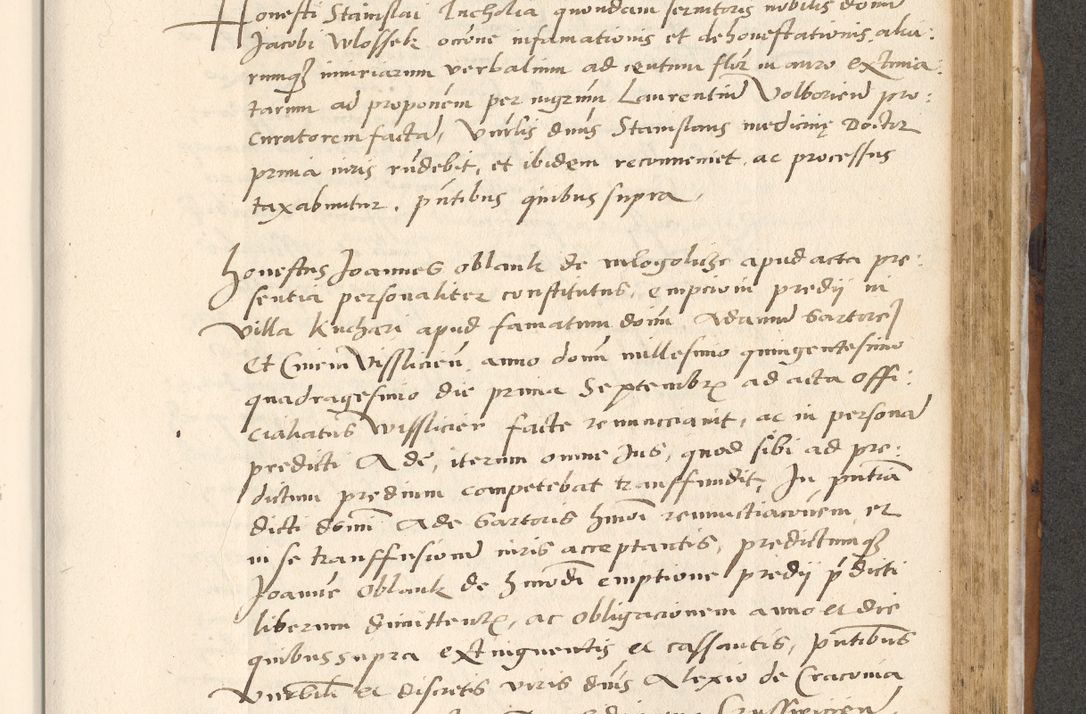 Honesti Stanislai Incholia quondam servitoris nobilis domi
Jacobi Wlossek occone infamationis et dehonestationis aliu:
rumq iniuriarum verbalium ad centum flor in auro extima:
tarum ad proponem per nigrum Laurentiu Volborien pro:
curatorem facta, Vnrlis dnus Stanislaus medicinę Doctor
prima iuris rndebit, et ibidem reconueniet, ac processus
taxabuntur. pntibus quibus supra,
Honestus Joannes oblauk de mlogoluze apud acta pre:
sentia personaliter constitutus, empcioni predij in
villa Kuchari apud famatum domi Adamu Sartore
Et Ciuem Visslicien, anno domi millesimo quingentesimo
quadragesimo die prima Septembr ad acta offi:
cialatus Wisslicien facte renuncciauit, ac in persona
predicti Ade, iterum omne Jus, quod sibi ad pre:
dictum predium competebat transffundit, In pntia
dicti domi Ade Sartoris hmoi renunctiacionem, et
in se transffusione iuris acceptantis, predictumq
Joanne Oblauk de hmodi emptione predij p dicti
liberum dimittentr, ac obligacionem anno et die
quibus supra extinguentis et cassantis, pntibus
Vnrbili et discretis viris dnis Alexio de Cracouia